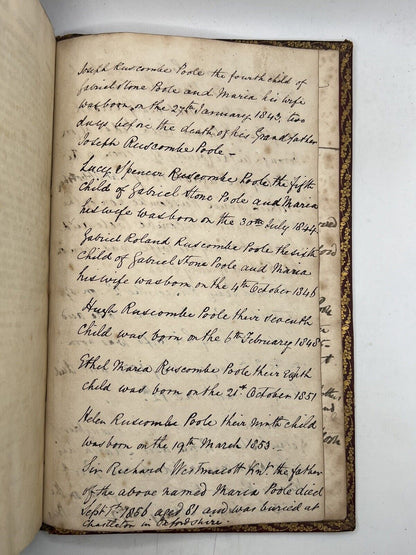 Joseph Ruscombe Poole the fourth child of
Gabriel Stone Poole and Maria his wife
was born on the 27th January 1843, two
days before the death of his Grandfather
Joseph Ruscombe Poole -
Lucy Spencer Ruscombe Poole the fifth
Child of Gabriel Stone Poole and Maria
his wife was born on the 30th July 1844.
Gabriel Roland Ruscombe Poole the sixth
Child of Gabriel Stone Poole and Maria
his wife was born on the 4th October 1846
Hugh Ruscombe Poole their seventh
Child was born on the 6th February 1848
Ethel Maria Ruscombe Poole their Eighth
child was born on the 21st October 1851
Helen Ruscombe Poole their Ninth child
was born on the 19th March 1853.
Sir Richard Westmacott Knt. the father
of the above named Maria Poole died
Sept 1st 1856 aged 81 and was buried at
Chastleton in Oxfordshire.